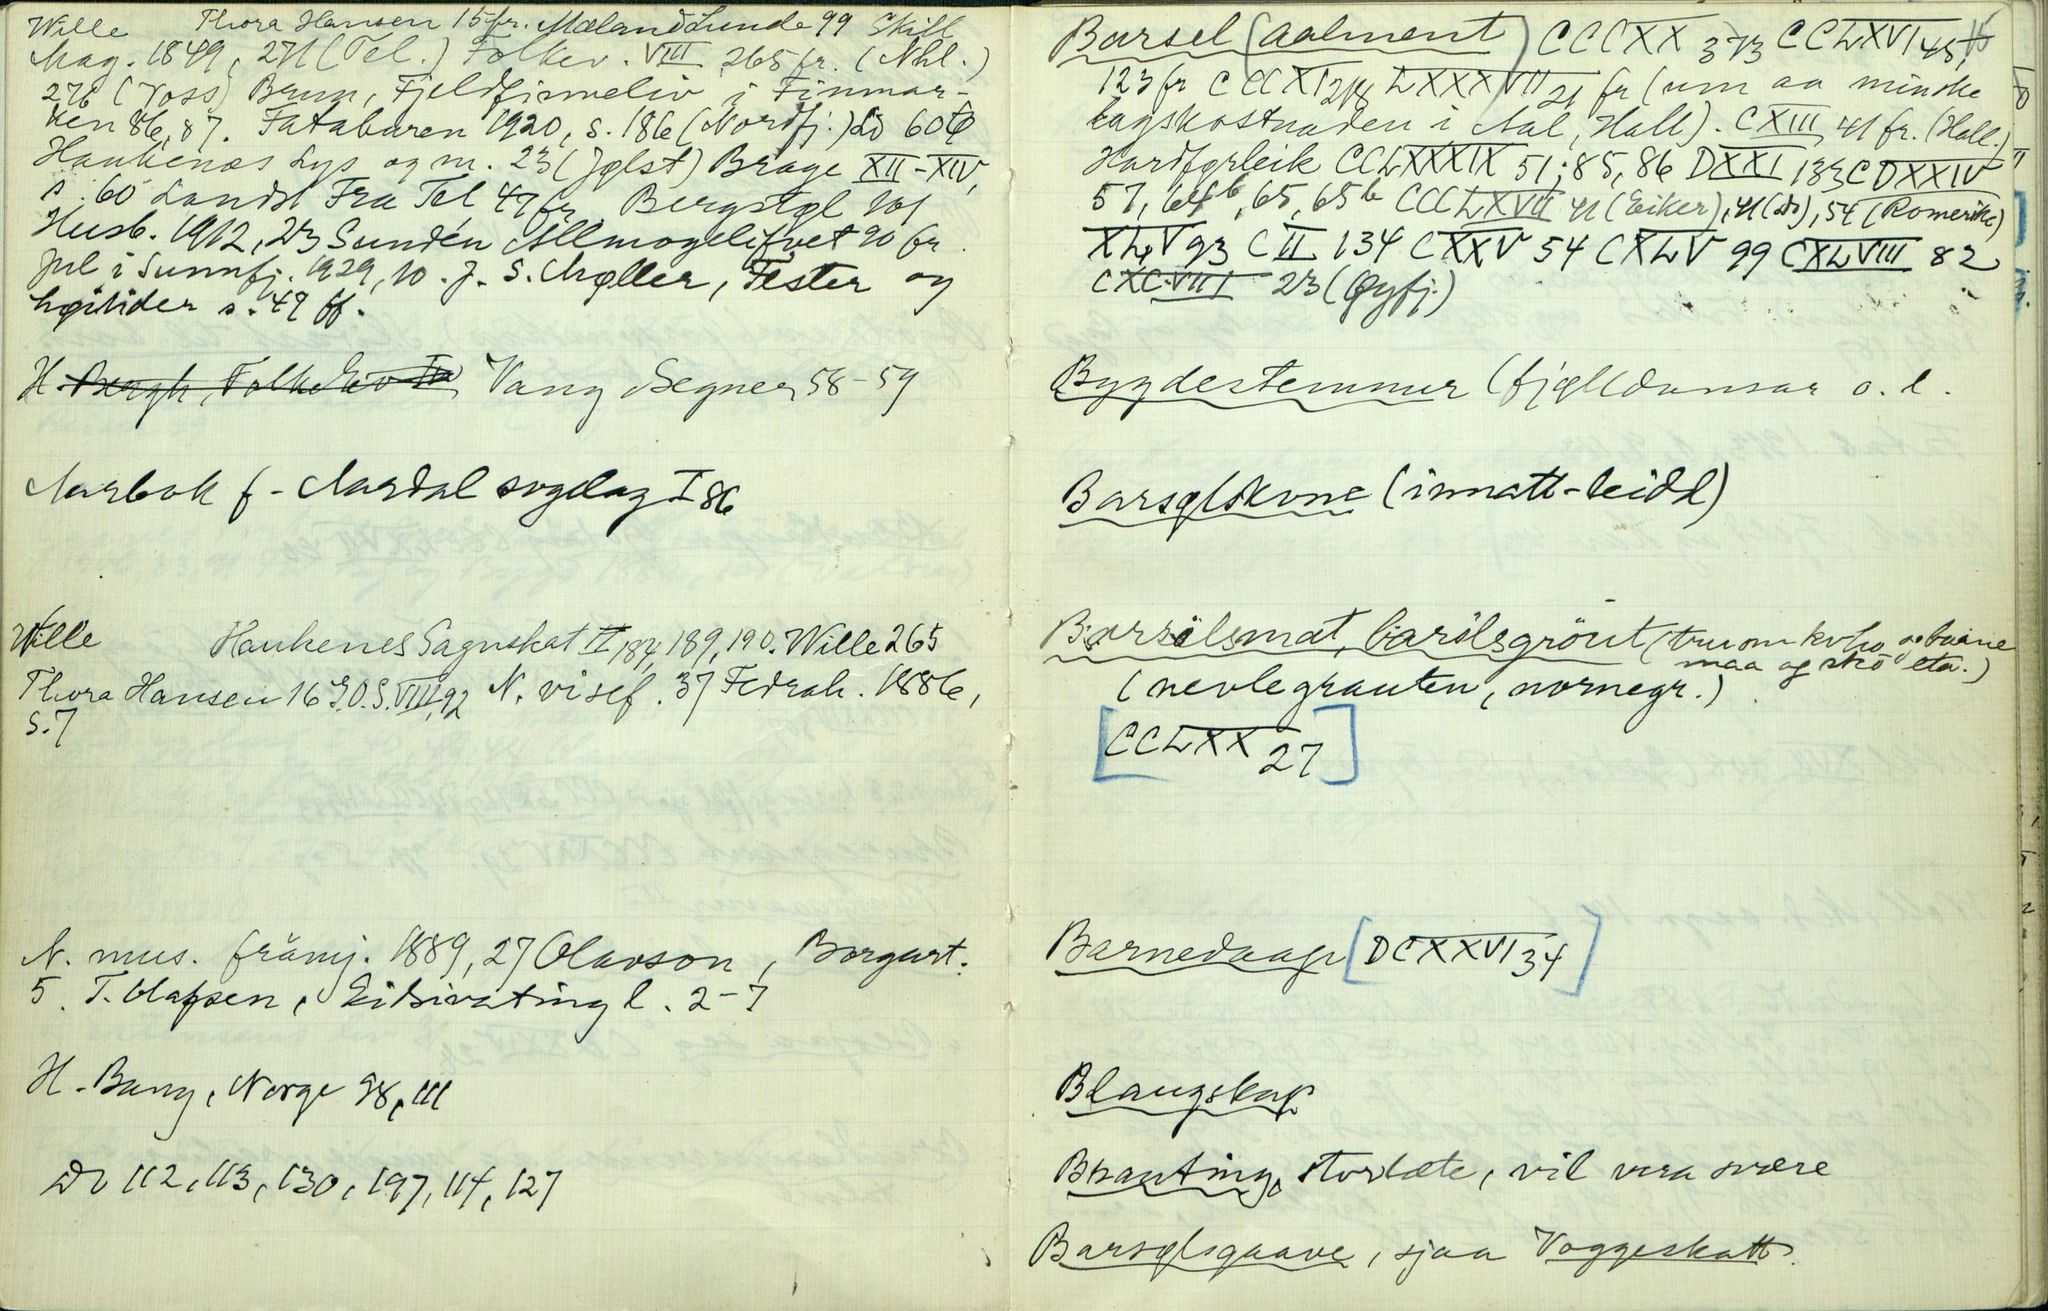 Wille Thora Hansen 15 fr. Mæland Lunde 99 Skill
Mag. 1849, 271 (Tel.) Folkev. VIII 265 fr. (Nhl.)
276 (Voss) Brun, Fjeldfinneliv i Finmar-
ken 86, 87. Fataburen 1920, s. 186 (Nordfj.) 60
Haukenæs Lys og m. 23 (Jølst) Brage XII-XIV,
s. 60 Landst Fra Tel 47 fr. Bergstøl 101
Husb. 1912, 273 Sundén Allmogelifvet 90 fr.
Jul i Sunnfj. 1929, 10. J. S. Møller, Fester og
høitider s. 49 ff.
H. Bergh, Folkeliv IV Vang Segner 58-59
Aarbok f. Aardal sogelag I 86
Wille Haukenes Sagnskat II 184, 189, 190. Wille 265
Thora Hansen 16 S.O.S. VIII, 92 N. visef. 37 Fedrah. 1886,
s. 7
N. mus. främj. 1889, 27 Olavson, Borgart.
5. T. Olafsen, Eidsivating l. 2-7
H. Bang, Norge 98, 111
Do 112, 113, 130, 197, 114, 127
Barsel (aalment) CCCXX 373 CCLXVI 45,
123 fr CCCXI LXXXVII 21 fr (um aa minske
lagskostnaden i Aal, Hall). CXIII 41 fr. (Hall.)
Hardførleik CCLXXXIX 51; 85, 86 DXXI 183 CDXXIV
57, 64b, 65, 65b CCCLXVII 41 (Eiker), 41 (do), 54 (Romerike)
XLV 93 CII 134 CXXV 54 CXLV 99 CXLVIII 82
CXCVIII 23 (Øyfj.)
Bygdestemnur (fjølldansar o. l.
Barsølskone (innatt-leidd)
Barsilsmat, barsilsgröut (truom kvho og baane
maa og sko eta.)
(nevlegrauten, nornegr.)
[CCLXX 27]
Barnedaape [DCXXVI 34]
Blaugskap
Brauting, storlæte, vil vera svære
Barsølsgaave, sjaa Voggeskatt.